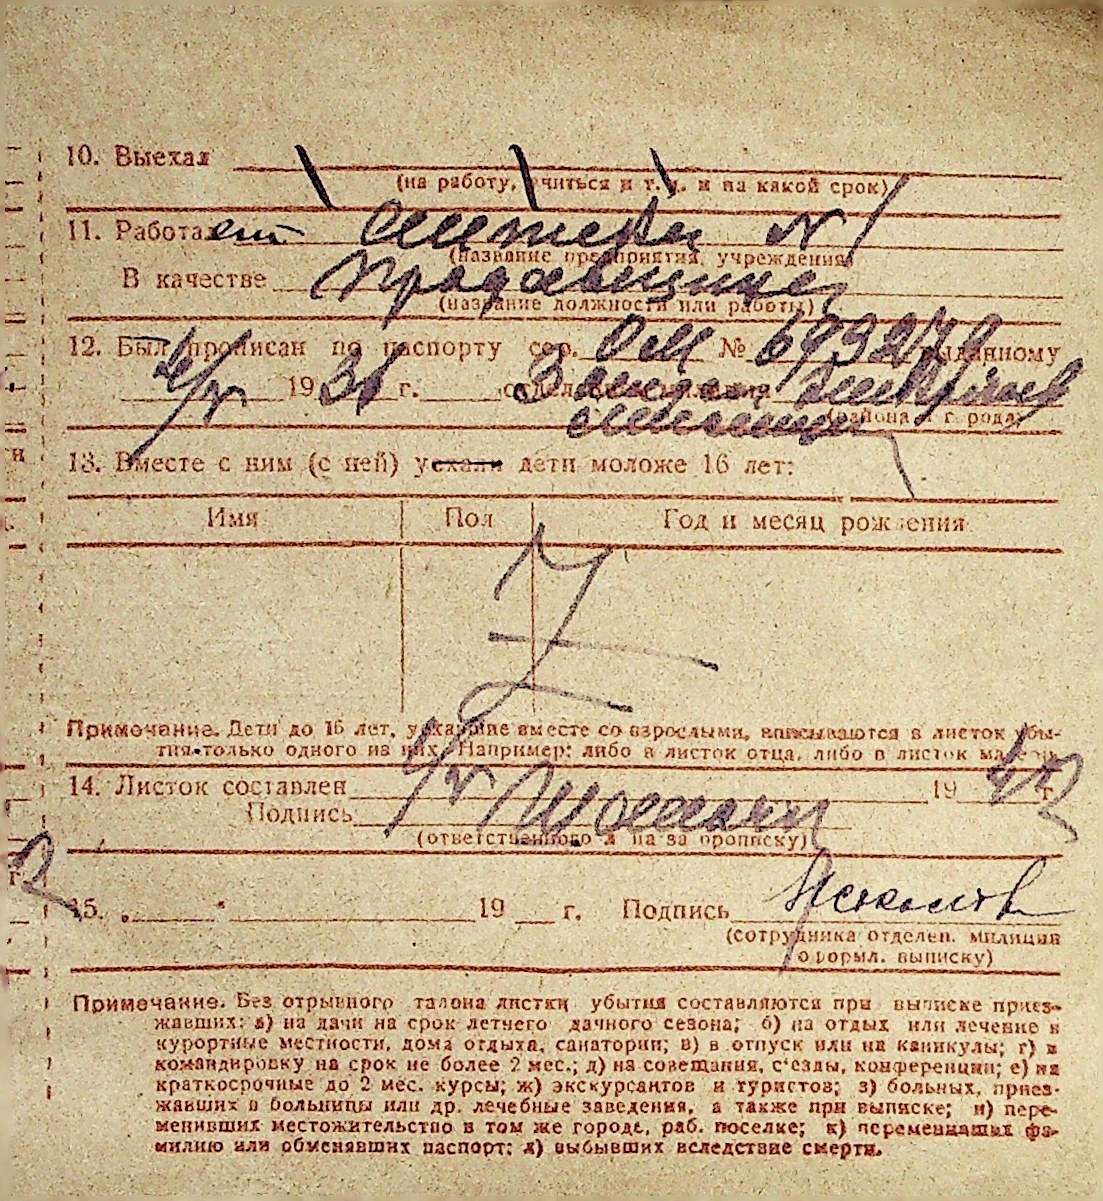 10. Выехал
(на работу, учиться и т. д. и на какой срок)
11. Работает №1
(название предприятия, учреждения)
В качестве продавщицы
(название должности или работы)
12. Был прописан по паспорту сер. № выданному
19 г. отделением милиции
(района и города)
13. Вместе с ним (с ней) уехали дети моложе 16 лет:
Имя Пол Год и месяц рождения
Z
Примечание. Дети до 16 лет, уехавшие вместе со взрослыми, вписываются в листок убы-
тия только одного из них. Например: либо в листок отца, либо в листок матери.
14. Листок составлен 19 г.
Подпись
(ответственного л на за прописку)
15. „ “ 19 г. Подпись
(сотрудника отделен. милиции
оформл. выписку)
Примечание. Без отрывного талона листки убытия составляются при выписке приез-
жавших: а) на дачи на срок летнего дачного сезона; б) на отдых или лечение в
курортные местности, дома отдыха, санатории; в) в отпуск или на каникулы; г) в
командировку на срок не более 2 мес.; д) на совещания, с'езды, конференции; е) на
краткосрочные до 2 мес. курсы; ж) экскурсантов и туристов; з) больных, приез-
жавших в больницы или др. лечебные заведения, а также при выписке; и) пере-
менивших местожительство в том же городе, раб. поселке; к) переменивших фа-
милию или обменявших паспорт; л) выбывших вследствие смерти.